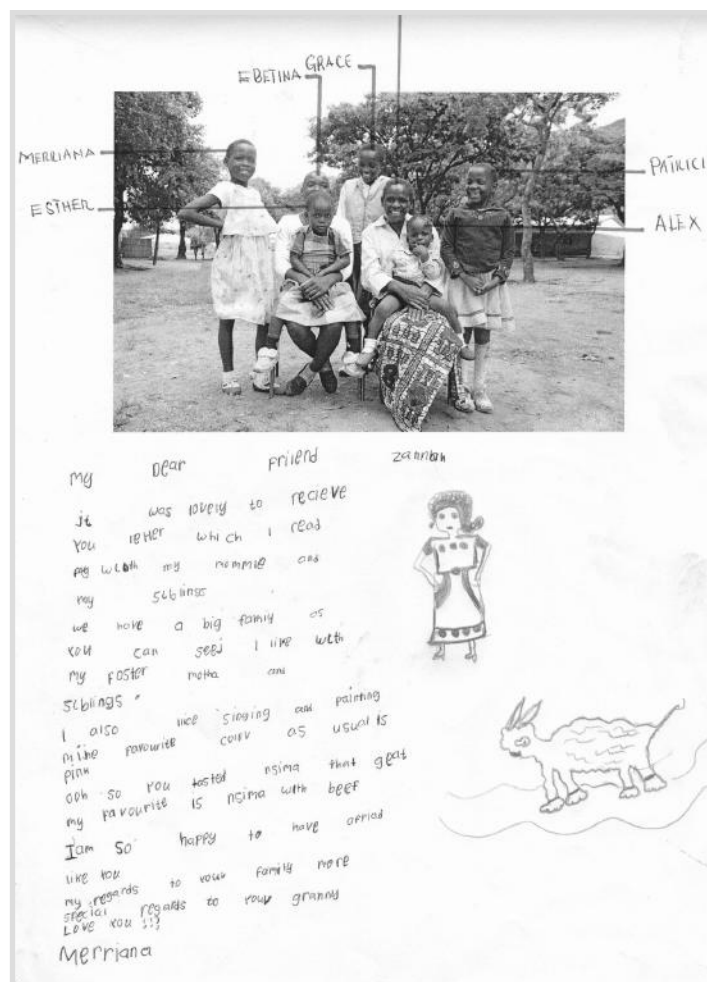 GRACE
EBETINA
MERRIANA
PATRICI
ESTHER
ALEX
My Dear Friend Zannah
it was lovely to recieve
you letter which I read
with my mommie and
my siblings
we have a big family as
you can seed I like with
my foster motha and
siblings
I also like singing and painting
mine favourite colrv as usual is
pink
ooh so you tasted nsima that geat
my favourite is nsima with beef
I am so happy to have
like you
my regards to your family more
special regards to your granny
Love you !!!
Merriana